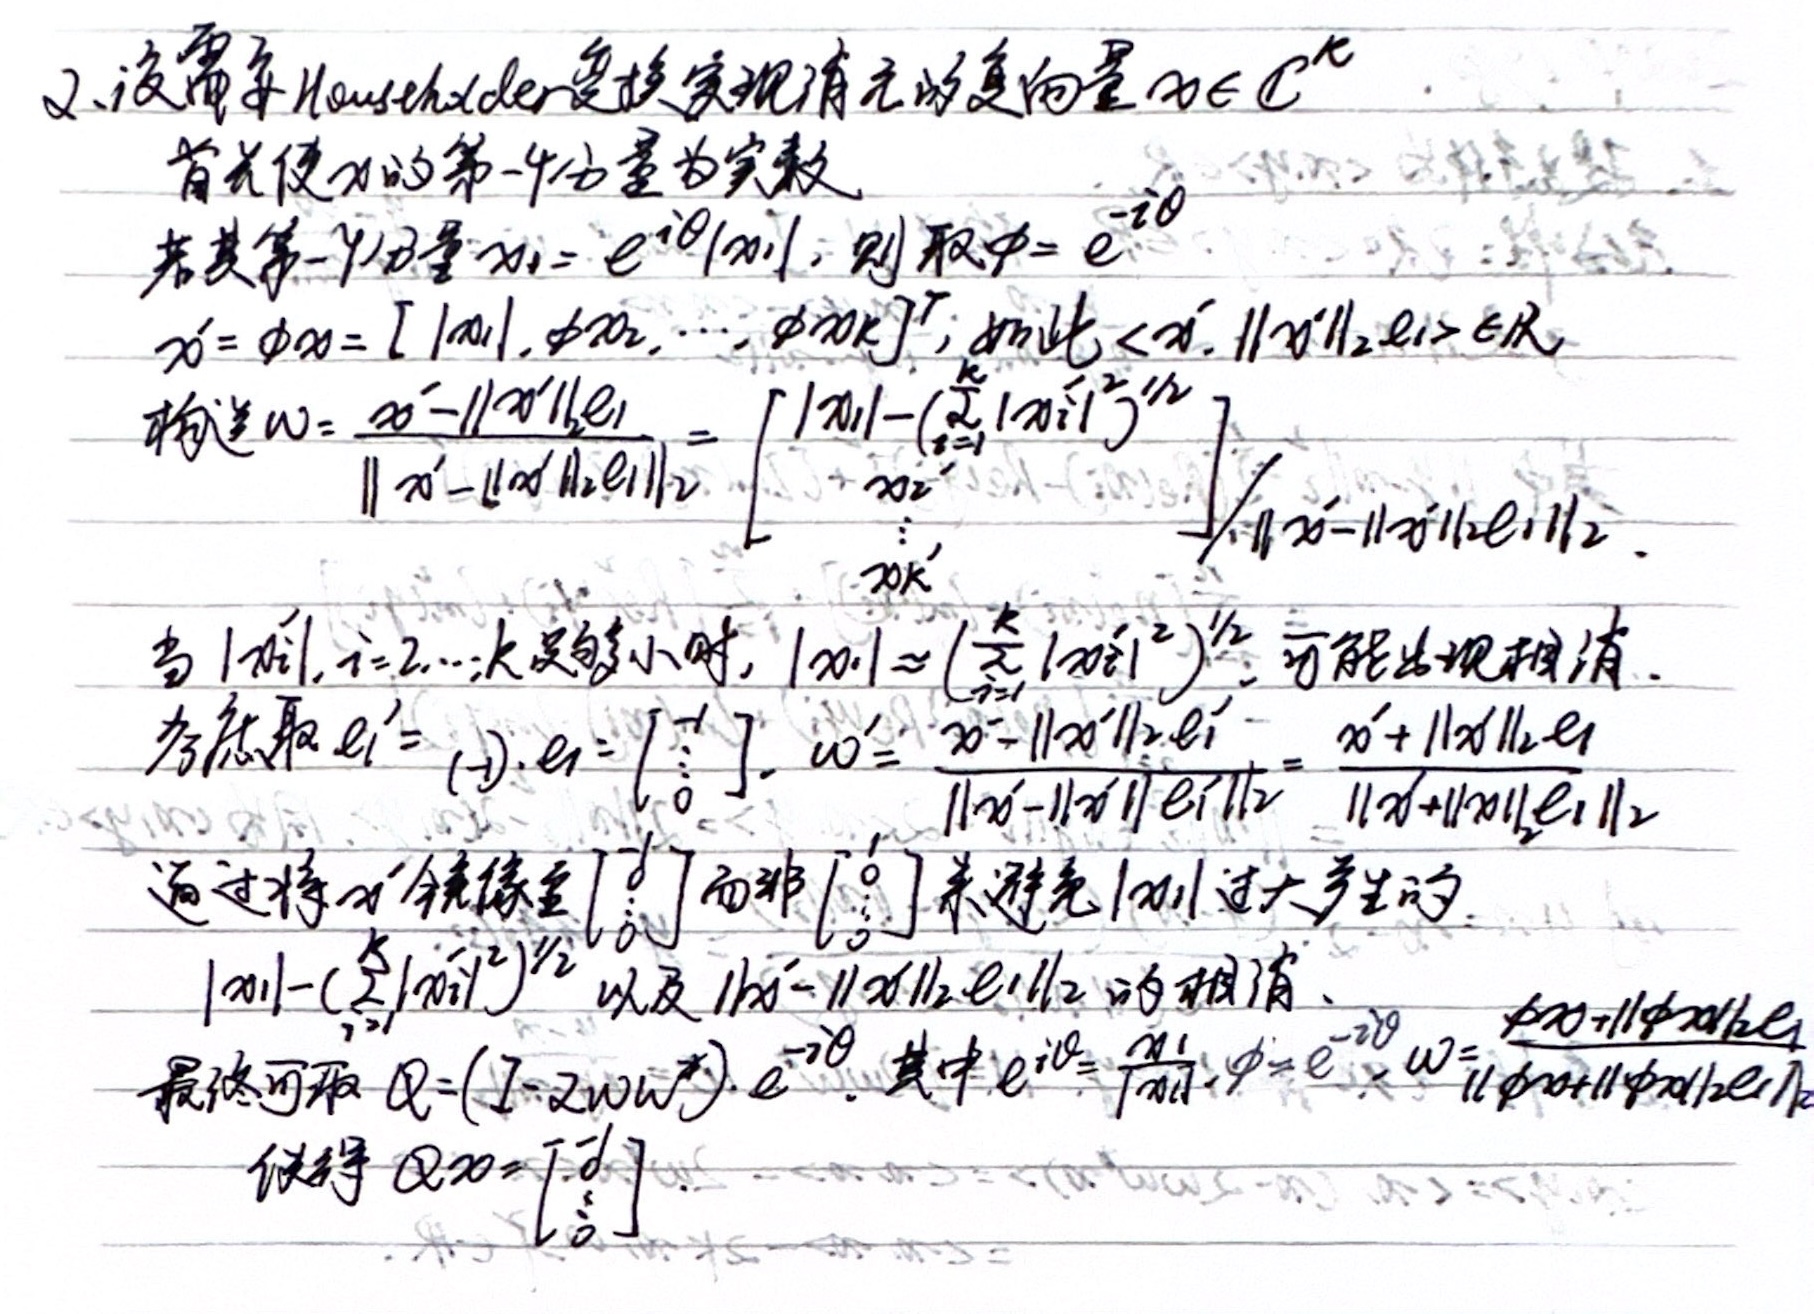 2、设需要Householder变换实现消元的复向量 x∈ℂ^k
首先使x的第一个分量为实数
若其第一个分量 x₁= e^{iθ}|x₁|, 则取φ= e^{-iθ}
x'= φx= [ |x₁|, φx₂, ⋯, φx_k ]^T, 如此 <x', ||x'||₂e₁> ∈ℝ
构造 w= (x'-||x'||₂e₁)/(||x'-||x'||₂e₁||₂) = [ |x₁|-(∑_{i=1}^{k}|x_i'|²)^{1/2} x₂' ⋮ x_k' ] / ||x'-||x'||₂e₁||₂ .
当 |x_i'|, i=2,…,k 足够小时, |x₁| ≈ (∑_{i=1}^{k}|x_i'|²)^{1/2}, 可能出现相消.
考虑取 e₁'= (-1)·e₁ = [ -1 ⋮ 0 ]. w'= (x'-||x'||₂e₁')/(||x'-||x'||e₁'||₂) = (x'+||x'||₂e₁)/(||x'+||x'||₂e₁||₂)
通过将x'镜像至 [ -1 0 ⋮ 0 ] 而非 [ 1 0 ⋮ 0 ] 来避免|x₁|过大产生的
|x₁|-(∑_{i=1}^{k}|x_i'|²)^{1/2} 以及 ||x'-||x'||₂e₁||₂ 的相消.
最终可取 Q=(I-2ww*)·e^{-iθ}. 其中 e^{iθ}= x₁/|x₁|, φ= e^{-iθ}, w= (φx+||φx||₂e₁)/(||φx+||φx||₂e₁||₂)
使得 Qx= [ -1 0 ⋮ 0 ]